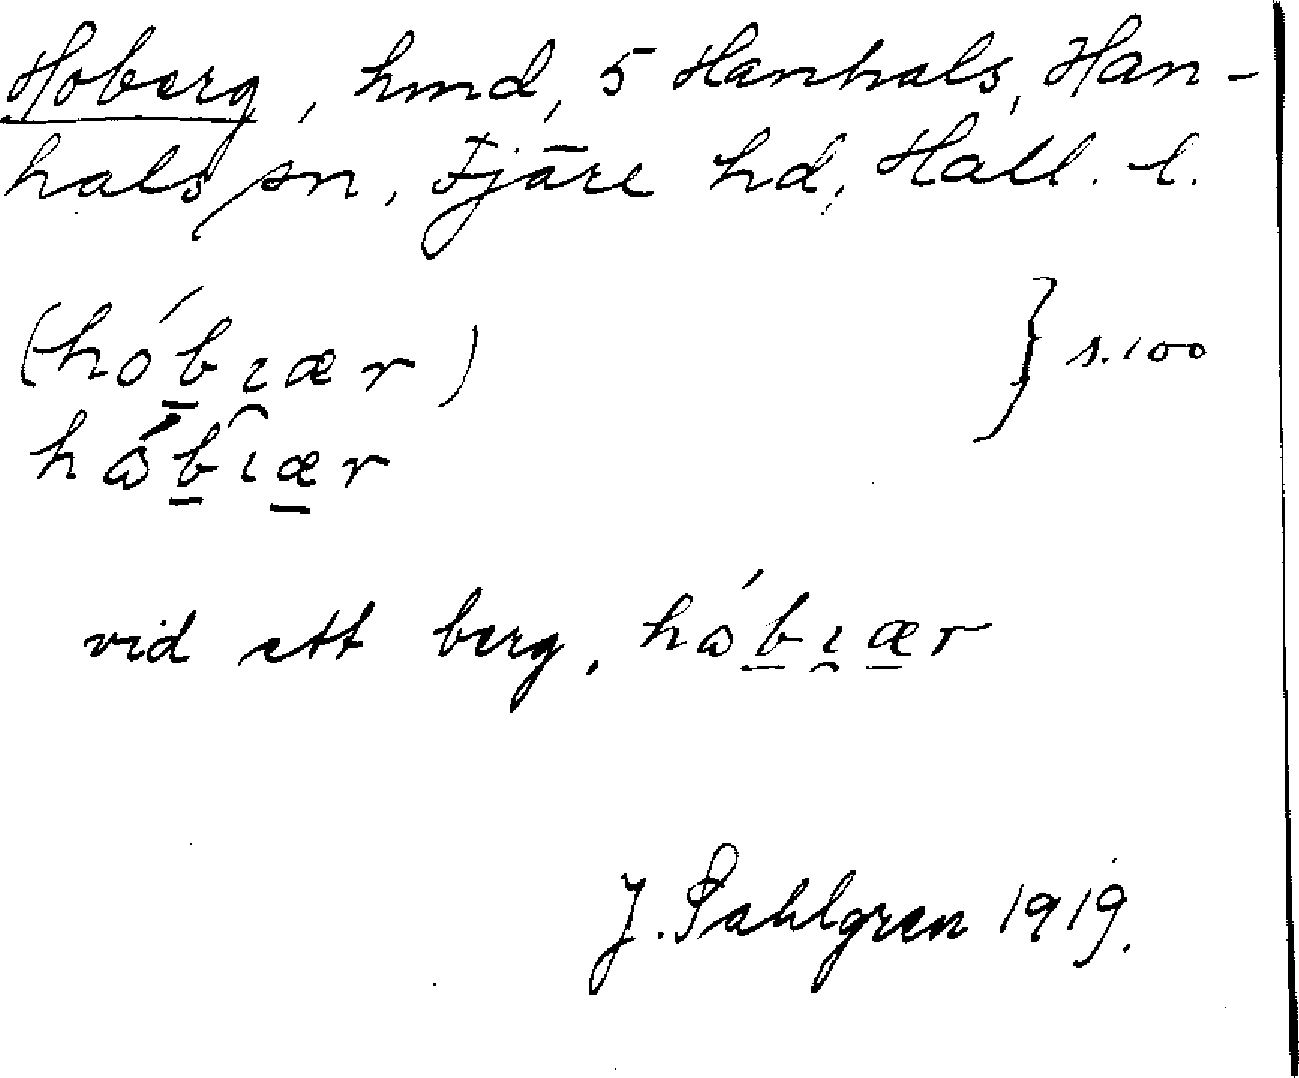 Hoberg, hmd, 5 Hanhals, Han-
hals sn, Fjäre hd, Hall. l.
(hób̲ɩ̯ær) } s. 100
hǻb̲ɩ̯æ̲r
vid ett berg, hǻb̲ɩ̯æ̲r
J. Sahlgren 1919.